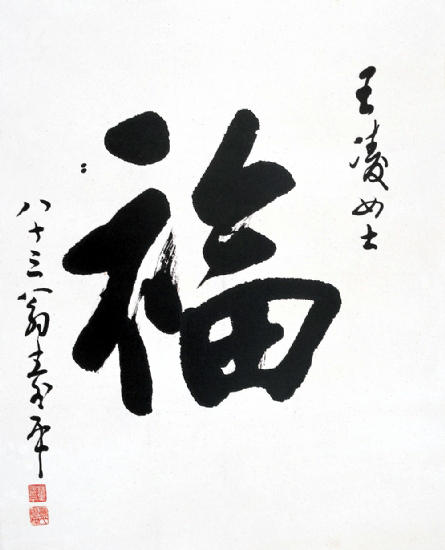 王凌女士
福
八十三翁